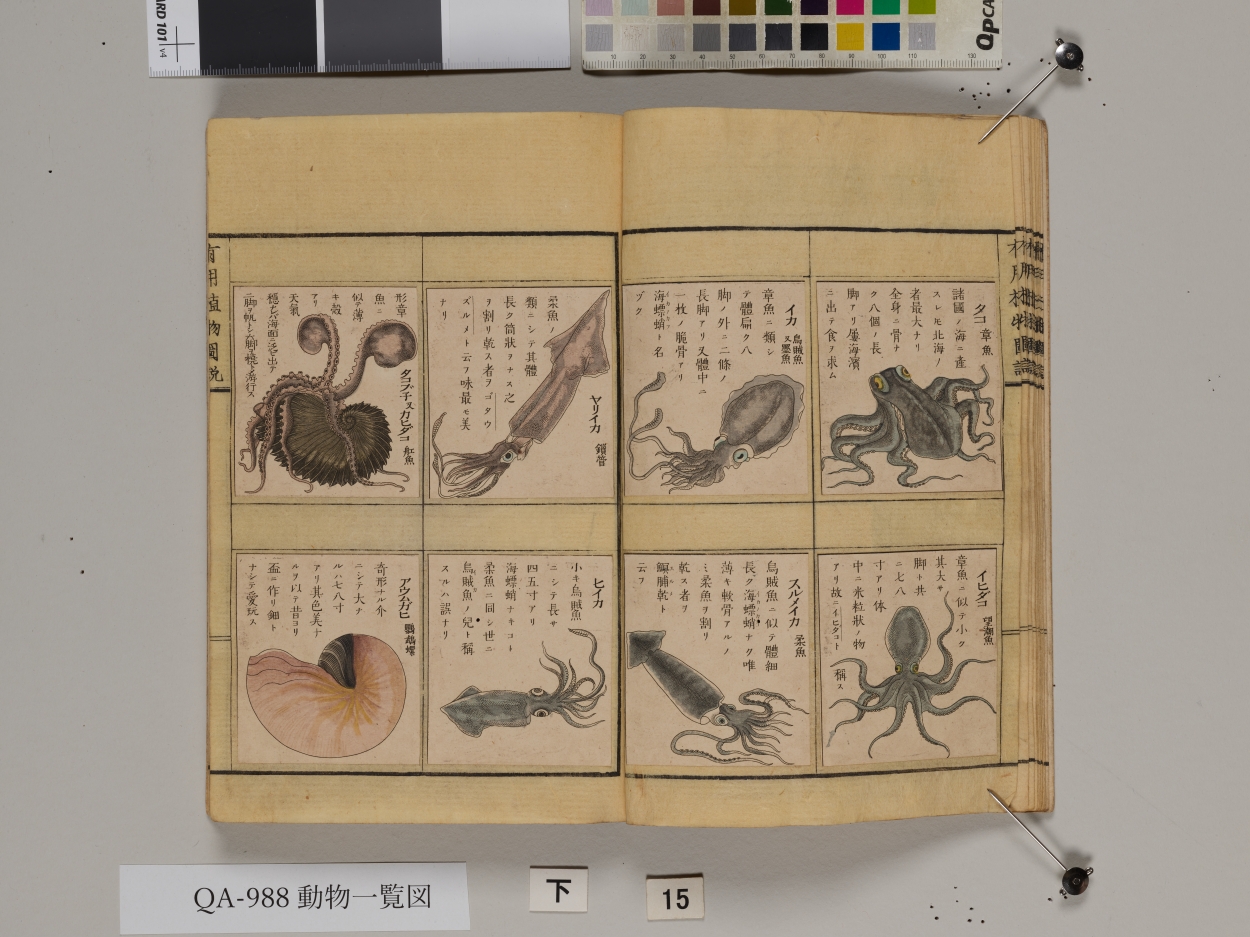 タコ 章魚
諸國ノ海ニ産
スレ𪜈北海ノ
者最大ナリ
全身ニ骨ナ
ク八個ノ長
脚アリ屢海濱
ニ出テ食ヲ求ム
イカ 烏賊魚 又墨魚
章魚ニ類シ
テ體扁ク八
脚ノ外ニ二條ノ
長脚アリ又體中ニ
一枚ノ脆骨アリ
海螵蛸ト名
ヅク
イヒダコ 望潮魚
章魚ニ似テ小ク
其大サ
脚ト共
ニ七八
寸アリ体
中ニ米粒狀ノ物
アリ故ニイヒダコト
稱ス
スルメイカ 柔魚
烏賊魚ニ似テ體細
長ク海螵蛸ナク唯
薄キ軟骨アルノ
ミ柔魚ヲ割リ
乾ス者ヲ
脯乾ト
云フ
ヤリイカ 鎖管
柔魚ノ
類ニシテ其體
長ク筒狀ヲナス之
ヲ割リ乾ス者ヲゴタウ
ズルメト云フ味最モ美
ナリ
タコブチ 又カヒダコ 舡魚
形章
魚ニ
似テ薄
キ殼
アリ
天氣
穩ナレバ海面ニ浮ビ出テ
二脚ヲ帆トシ六脚ヲ橈トシ游行ス
ヒイカ
小キ烏賊魚
ニシテ長サ
四五寸アリ
海螵蛸ナキコト
柔魚ニ同シ世ニ
烏賊魚ノ兒ト稱
スルハ誤ナリ
アウムガヒ 鸚鵡螺
奇形ナル介
ニシテ大ナ
ルハ七八寸
アリ其色美ナ
ルヲ以テ昔ヨリ
盃ニ作リ鈿ト
ナシテ愛玩ス
有用植物圖説
QA-988 動物一覧図
下
15